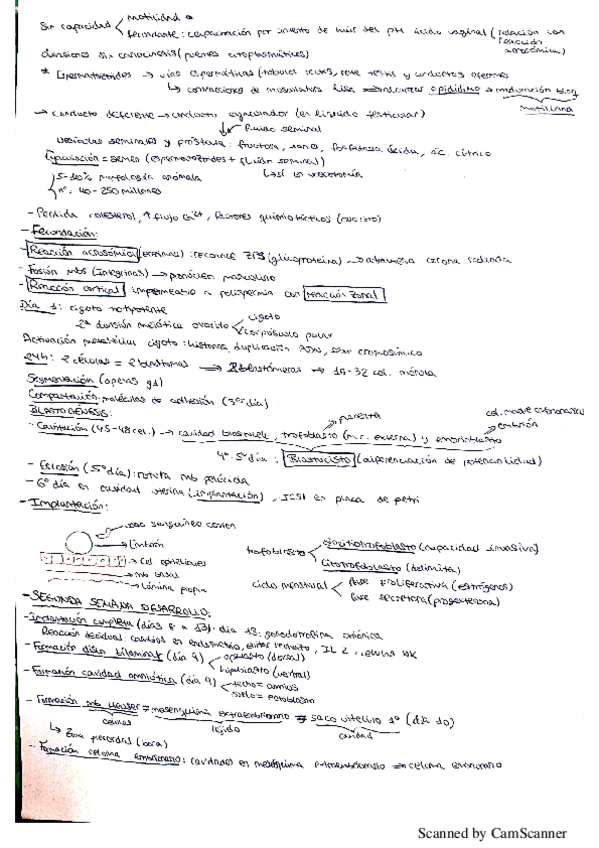 Sin capacidad motilidad
fecundante: capacitación por aumento de del pH ácido vaginal (relación con reacción acrosómica)
divisiones sin cariocinesis (puentes citoplasmáticos)
* Espermatozoides → vías espermáticas (tubulos rectos, rete testis y conductos eferentes
↳ contracciones de musculatura lisa epidídimo → maduración
motilidad
→ conducto deferente → conducto eyaculador (en líquido testicular)
fluido seminal
vesículas seminales y próstata: fructosa, iones, fosfatasa ácida, ác. cítrico
Eyaculación = semen (espermatozoides + fluido seminal)
5-10% morfología anómala
nº: 40-250 millones
↳ sí en vasectomía
- Pérdida colesterol, ↑ flujo Ca2+, factores quimiotácticos
- Fecundación:
- Reacción acrosómica (enzimas): reconoce ZP3 (glucoproteína) → atraviesa corona radiada
- Fusión mbs (Integrinas) → pronúcleo masculino
- Reacción cortical impermeable a polispermia con reacción zonal
Día 1: cigoto totipotente
2ª división meiótica ovocito cigoto
corpúsculo polar
Activación metabólica cigoto: histonas, duplicación ADN, cromosómico
24h: 2 células = 2 blastómeros → 16-32 cél. mórula
Segmentación
Compactación: moléculas de adhesión (3er día)
BLASTOGÉNESIS:
- Cavitación (45-48 cel.) → cavidad blastocele, trofoblasto (m.c. externa) y embrioblasto
placenta
cel. madre embrionarias
embrión
4º-5º día: Blastocisto (diferenciación de potencialidad)
- Eclosión (5º día): rotura mb pelúcida
- 6º día en cavidad uterina (implantación), ICSI en placa de petri
- Implantación:
→ vaso sanguíneo
→ Embrión
→ Cél epiteliales
→ mb basal
→ lámina propia
trofoblasto sincitiotrofoblasto (capacidad invasiva)
Citotrofoblasto (delimita)
ciclo menstrual fase proliferativa (estrógenos)
fase secretora (progesterona)
- SEGUNDA SEMANA DESARROLLO:
- Implantación completa (días 8 a 13). día 13: gonadotrofina coriónica
Reacción decidual: cambios en endometrio, evitar rechazo, IL 2, células NK
- Formación disco bilaminar (día 9) epiblasto (dorsal)
hipoblasto (ventral)
- Formación cavidad amniótica (día 9) techo = amnios
suelo = epiblasto
- Formación mb Heuser = mesénquima extraembrionario = saco vitelino 1º (día 10)
células
tejido
cavidad
↳ Zona precordal (boca)
- Formación celoma embrionario: cavidades en mesénquima → celoma embrionario
Scanned by CamScanner